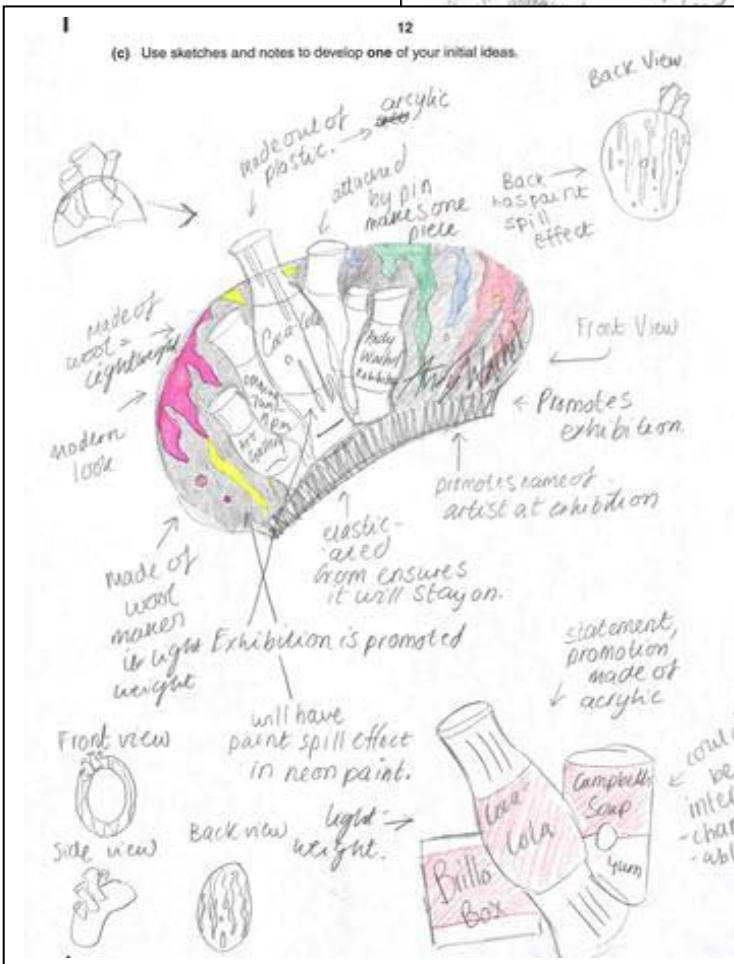 12
(c) Use sketches and notes to develop one of your initial ideas.
Back View
made out of
plastic. → arcylic
attached
by pin
makes one
piece
Back
has paint
spill
effect
made of
wool =
lightweight
modern
look
Coca Cola
Andy
Warhol
exhibition
Andy Warhol
Front View
Promotes
exhibition.
promotes name of
artist at exhibition
elastic-
ated
from ensures
it will stay on.
made of
wool
makes
it light
weight
Exhibition is promoted
will have
paint spill effect
in neon paint.
statement,
promotion
made of
acrylic
Front view
Side view
Back view
light-
weight.
Coca-
Cola
Campbells
Soup
yum
Brillo
Box
be